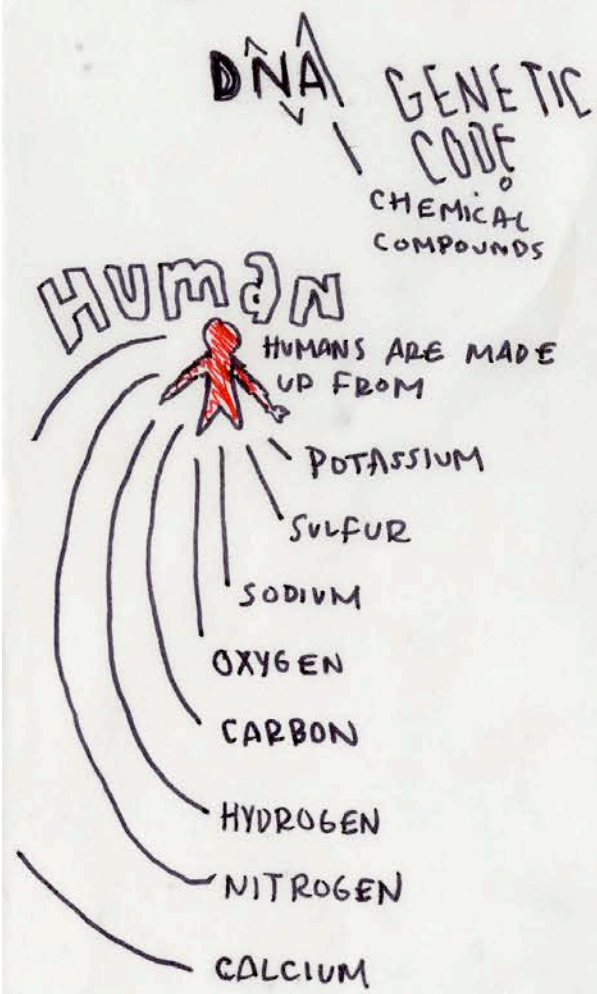 DNA
GENETIC
CODE
CHEMICAL
COMPOUNDS
HUMAN
HUMANS ARE MADE
UP FROM
POTASSIUM
SULFUR
SODIUM
OXYGEN
CARBON
HYDROGEN
NITROGEN
CALCIUM